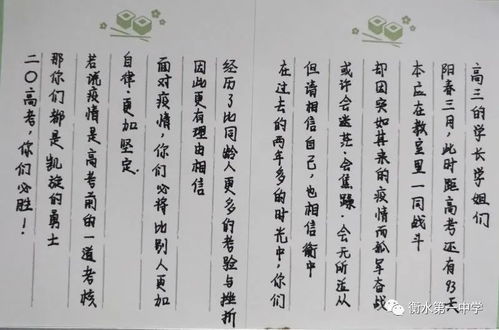 高三的学长学姐们
阳春三月，此时距高考还有93天
本应在教室里一同战斗
却因突如其来的疫情而孤军奋战
或许会迷茫·会焦躁·会无所适从
但请相信自己，也相信衡中
在过去的两年多的时光中，你们
经历了比同龄人更多的考验与挫折
因此更有理由相信
面对疫情，你们必将比别人更加
自律·更加坚定.
若说疫情是高考前的一道考核
那你们都是凯旋的勇士
二〇高考，你们必胜！
衡水第一中学